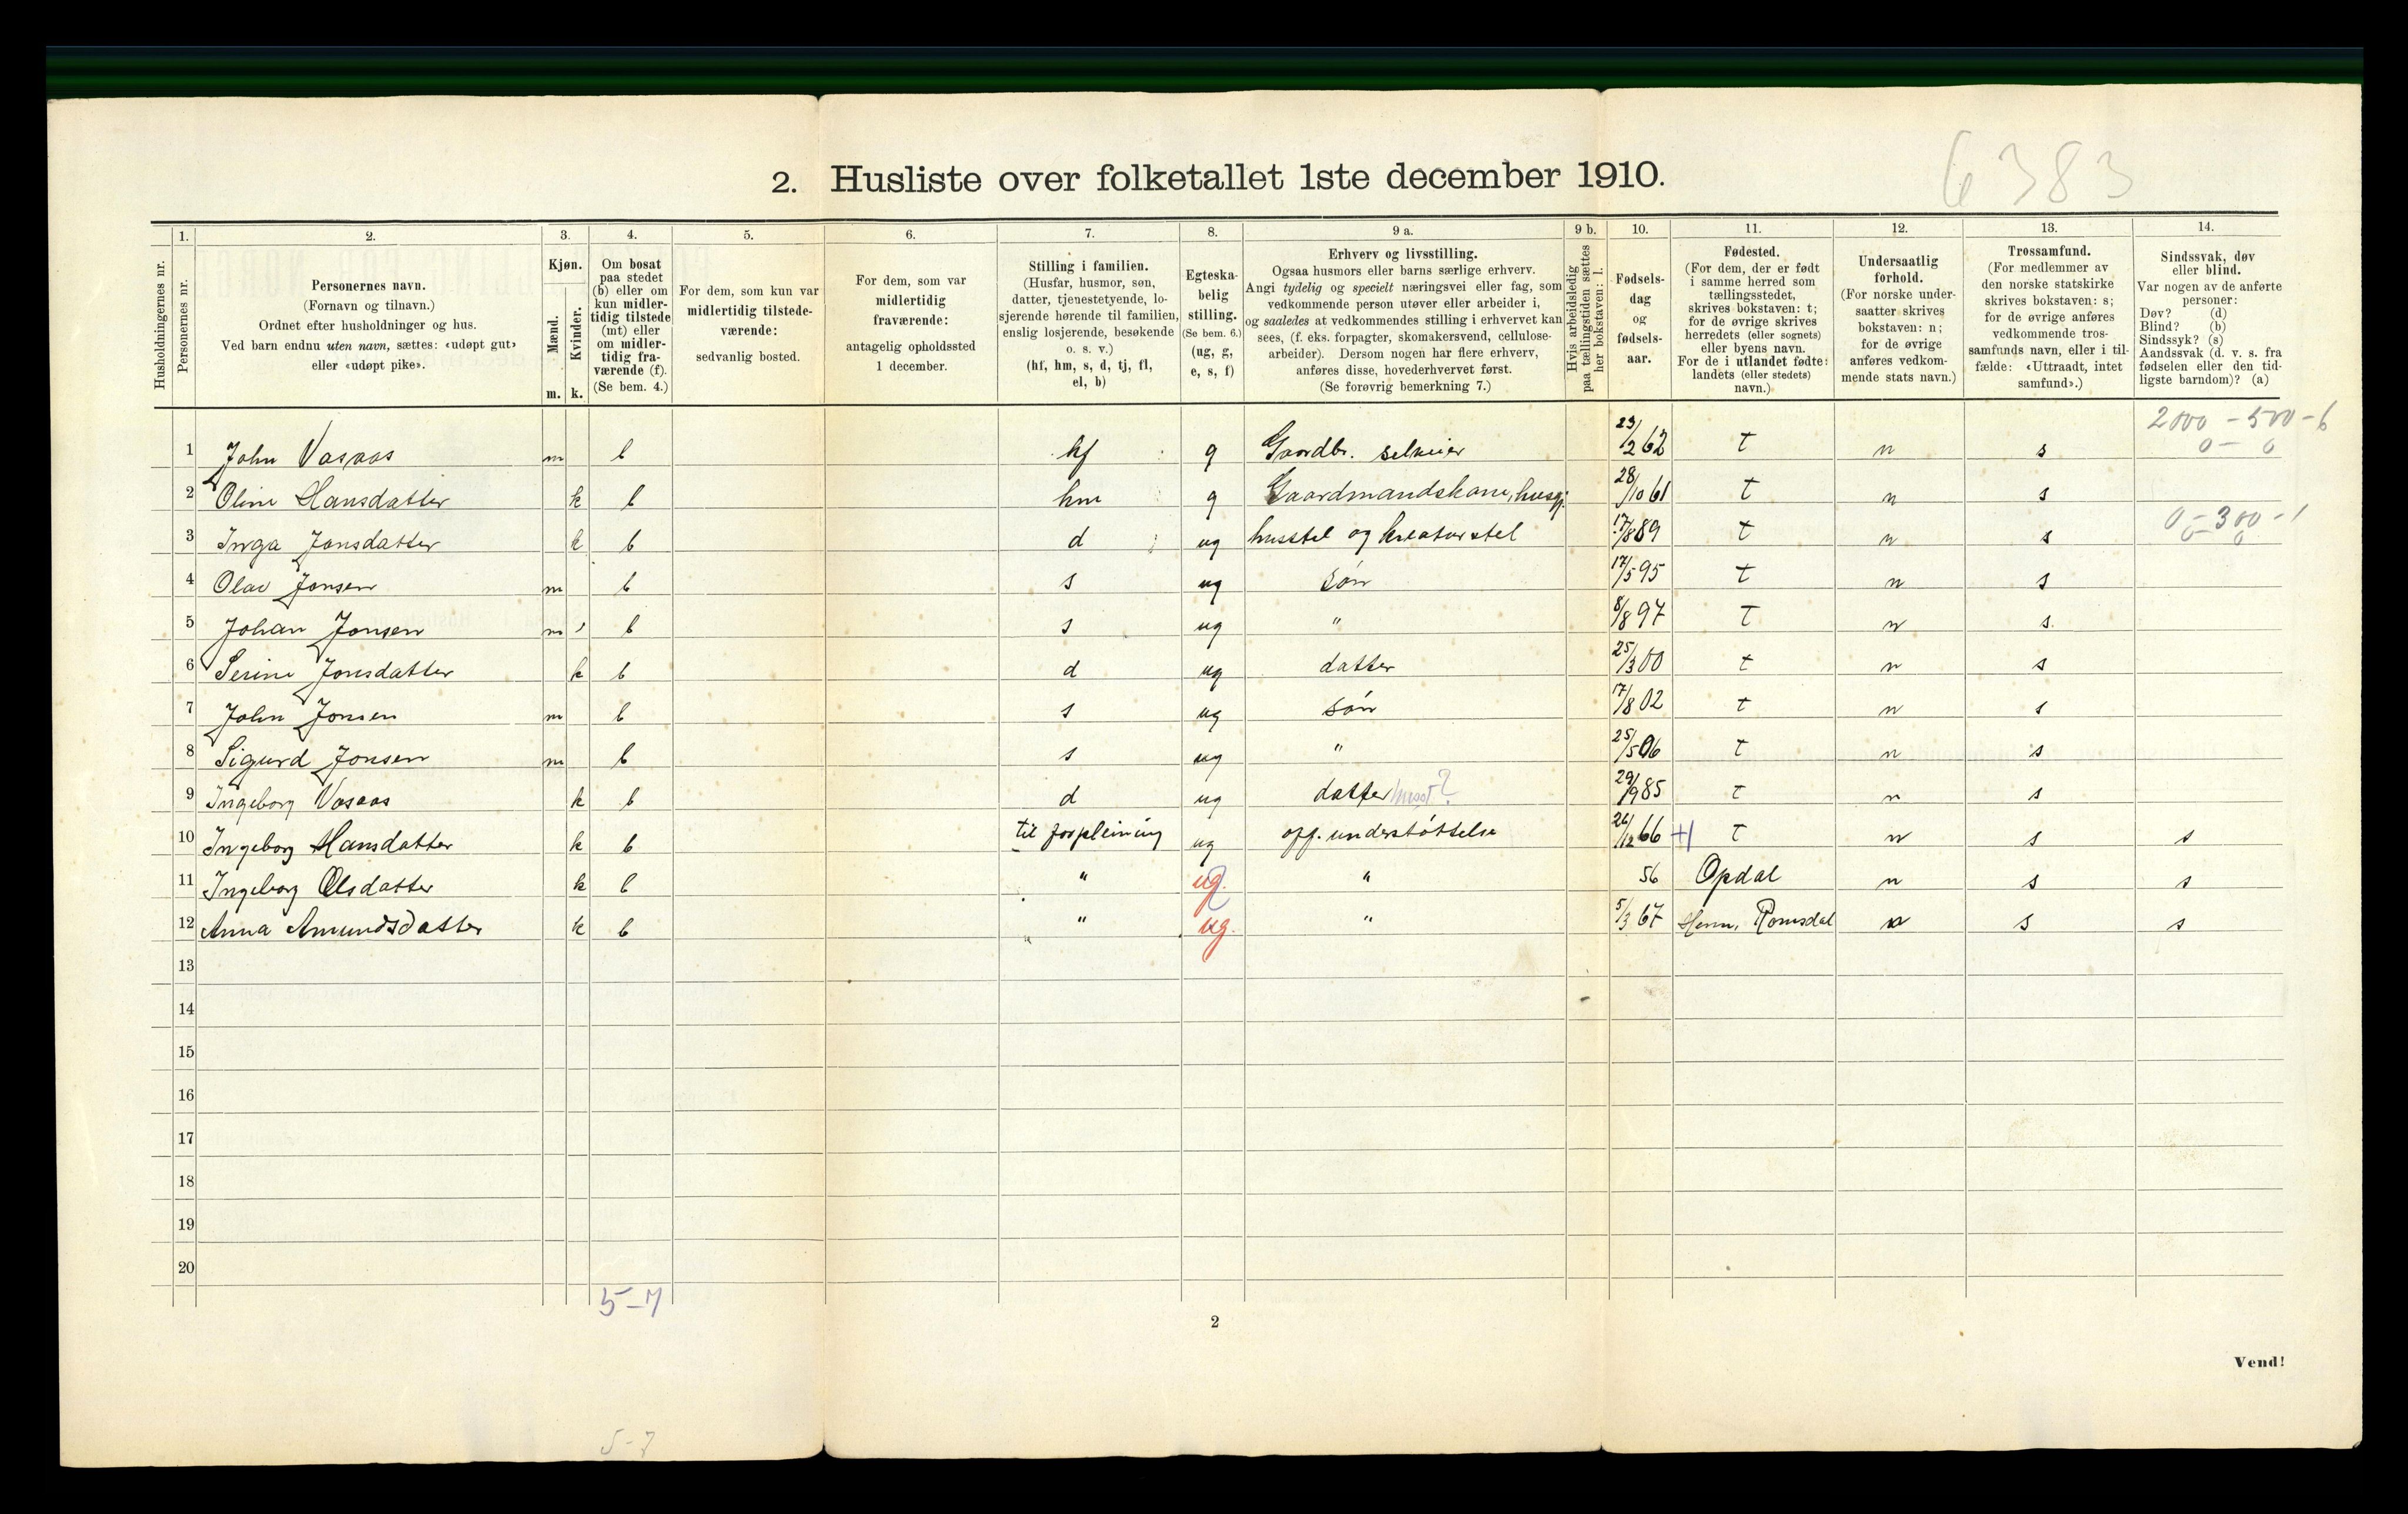 6383
2. Husliste over folketallet 1ste december 1910.
Husholdningernes nr.
1. Personernes nr.
2.
Personernes navn.
(Fornavn og tilnavn.)
Ordnet efter husholdninger og hus.
Ved barn endnu uten navn, sættes: «udøpt gut»
eller «udøpt pike».
3.
Kjøn.
Mænd.
Kvinder.
m. k.
4.
Om bosat
paa stedet
(b) eller om
kun midler-
tidig tilstede
(mt) eller
om midler-
tidig fra-
værende (f).
(Se bem. 4.)
5.
For dem, som kun var
midlertidig tilstede-
værende:
sedvanlig bosted.
6.
For dem, som var
midlertidig
fraværende:
antagelig opholdssted
1 december.
7.
Stilling i familien.
(Husfar, husmor, søn,
datter, tjenestetyende, lo-
sjerende hørende til familien,
enslig losjerende, besøkende
o. s. v.)
(hf, hm, s, d, tj, fl,
el, b)
8.
Egteska-
belig
stilling.
(Se bem. 6.)
(ug, g,
e, s, f)
9 a.
Erhverv og livsstilling.
Ogsaa husmors eller barns særlige erhverv.
Angi tydelig og specielt næringsvei eller fag, som
vedkommende person utøver eller arbeider i,
og saaledes at vedkommendes stilling i erhvervet kan
sees, (f. eks. forpagter, skomakersvend, cellulose-
arbeider). Dersom nogen har flere erhverv,
anføres disse, hovederhvervet først.
(Se forøvrig bemerkning 7.)
9 b.
Hvis arbeidsledig
paa tællingstiden sættes
her bokstaven: l.
10.
Fødsels-
dag
og
fødsels-
aar.
11.
Fødested.
(For dem, der er født
i samme herred som
tællingsstedet,
skrives bokstaven: t;
for de øvrige skrives
herredets (eller sognets)
eller byens navn.
For de i utlandet fødte:
landets (eller stedets)
navn.)
12.
Undersaatlig
forhold.
(For norske under-
saatter skrives
bokstaven: n;
for de øvrige
anføres vedkom-
mende stats navn.)
13.
Trossamfund.
(For medlemmer av
den norske statskirke
skrives bokstaven: s;
for de øvrige anføres
vedkommende tros-
samfunds navn, eller i til-
fælde: «Uttraadt, intet
samfund».)
14.
Sindssvak, døv
eller blind.
Var nogen av de anførte
personer:
Døv? (d)
Blind? (b)
Sindssyk? (s)
Aandssvak (d. v. s. fra
fødselen eller den tid-
ligste barndom)? (a)
2000 - 500 - 6
0 - 0
1 John Vasaas m b hf g Gaardbr. selveier 23/2 62 t n s
2 Oline Hansdatter k b hm g Gaardmandskone, husgj. 28/10 61 t n s
0 - 300 - 1
0 0
3 Inga Jonsdatter k b d ug husstel og kreaturstel 17/8 89 t n s
4 Olav Jonsen m b s ug søn 17/5 95 t n s
5 Johan Jonsen m b s ug " 8/8 97 t n s
6 Serine Jonsdatter k b d ug datter 25/3 00 t n s
7 John Jonsen m b s ug søn 17/8 02 t n s
8 Sigurd Jonsen m b s ug " 25/5 06 t n s
9 Ingeborg Vasaas k b d ug datter ? 29/9 85 t n s
10 Ingeborg Hansdatter k b til forpleining ug off. understøttelse 26/12 66 +1 t n s s
11 Ingeborg Olsdatter k b " ug. " 56 Opdal n s s
12 Anna Amundsdatter k b " ug. " 5/3 67 Romsdal n s s
13
14
15
16
17
18
19
20
5-7
2
Vend!
5-7